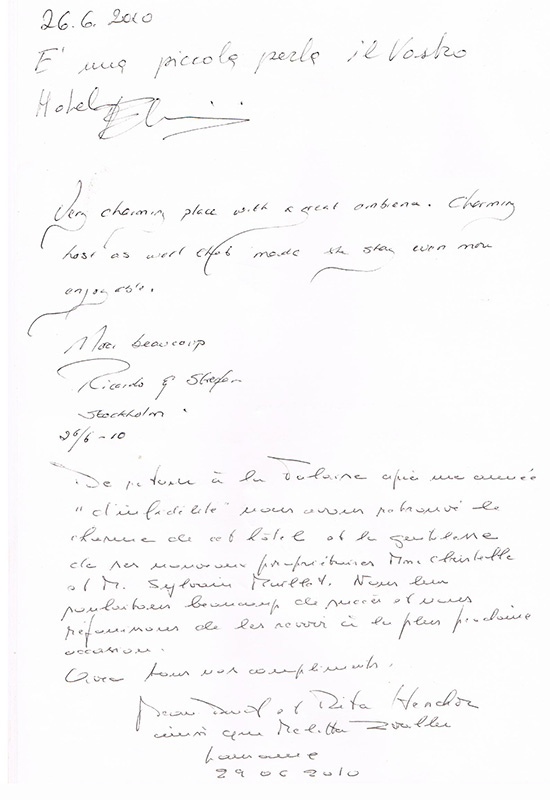 26.6.2010
E' una piccola perla il Vostro
Hotel
Very charming place with a great ambiena. Charming
host as well that made the stay even more
enjoyable.
Merci beaucoup
Ricardo & Stefan
Stockholm.
26/6-10
De retour à la après une année
"d'infidélité" nous avons retrouvé le
charme de cet hôtel et la gentillesse
de ses nouveaux propriétaires Mme Christelle
et M. Sylvain. Nous leur
souhaitons beaucoup de succès et nous
réjouissons de les revoir à la plus prochaine
occasion.
Avec tous nos compliments.
et Rita
ainsi que
Lausanne
29 06 2010